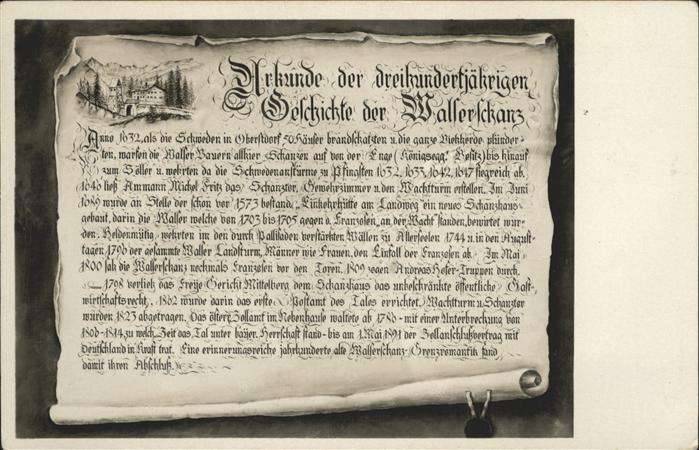 Urkunde der dreihundertjährigen
Geschichte der Walserschanz
Anno 1632, als die Schweden in Oberstdorf 50 Häuser brandschatzten u. die ganze Viehherde plünder-
ten, warfen die Walser Bauern allhier Schanzen auf von der Enge (Königsegg. Besitz) bis hinauf
zum Söller u. wehrten da die Schwedenanstürme zu Pfingsten 1632, 1633, 1642, 1647 siegreich ab.
1648 ließ Ammann Michel Fritz das Schanztor, Gewehrzimmer u. den Wachtturm erstellen. Im Juni
1689 wurde an Stelle der schon vor 1573 bestand. „Einkehrhütte am Landweg" ein neues Schanzhaus
gebaut, darin die Walser welche von 1703 bis 1705 gegen d. Franzosen „an der Wacht" standen, bewirtet wur-
den. Heldenmütig wehrten im den durch Pallisaden verstärkten Wällen zu Allerseelen 1744 u. in den August-
tagen 1796 der gesamte Walser Landsturm, Männer wie Frauen, den Einfall der Franzosen ab. Im Mai
1800 sah die Walserschanz nochmals Franzosen vor den Toren, 1809 zogen Andreas Hofer-Truppen durch.
1798 verlieh das Freye Gericht Mittelberg dem Schanzhaus das unbeschränkte öffentliche Gast-
wirtschaftsrecht, 1862 wurde darin das erste Postamt des Tales errichtet. Wachtturm u. Schanztor
wurden 1823 abgetragen. Das österr. Zollamt im Nebenhause waltete ab 1785 - mit einer Unterbrechung von
1806-1814, zu welch. Zeit das Tal unter bayer. Herrschaft stand - bis am 1. Mai 1891 der Zollanschlußvertrag mit
Deutschland in Kraft trat. Eine erinnerungsreiche jahrhunderte alte Walserschanz-Grenzromantik fand
damit ihren Abschluß.